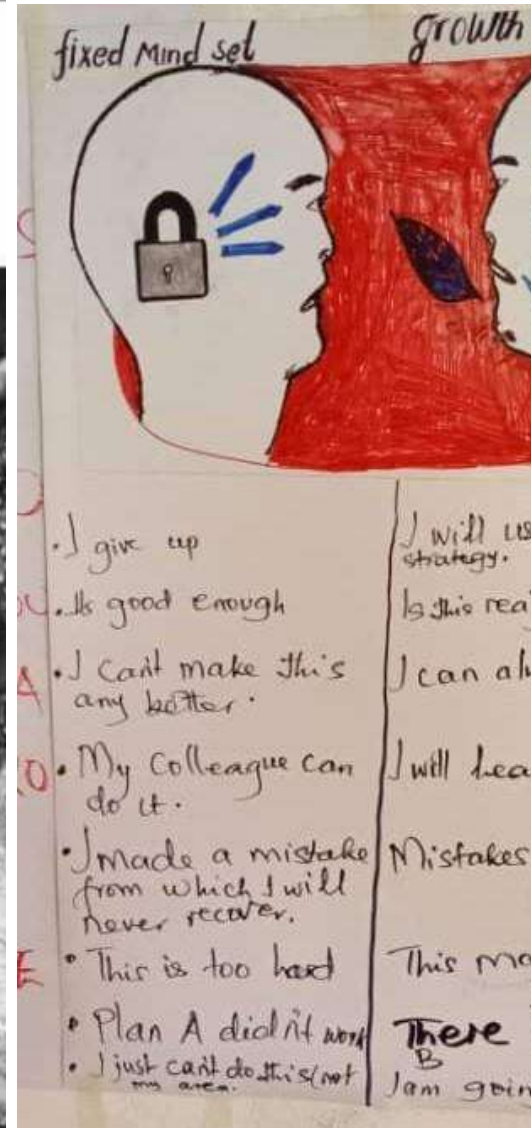 fixed Mind set
growth
• I give up
• Its good enough
• I can't make this
any better.
• My Colleague can
do it.
• I made a mistake
from which I will
never recover.
• This is too hard
• Plan A didn't work
• I just can't do this/not
my area.
I will us
strategy.
Is this rea
I can al
I will lea
Mistakes
This ma
There
B
I am goin